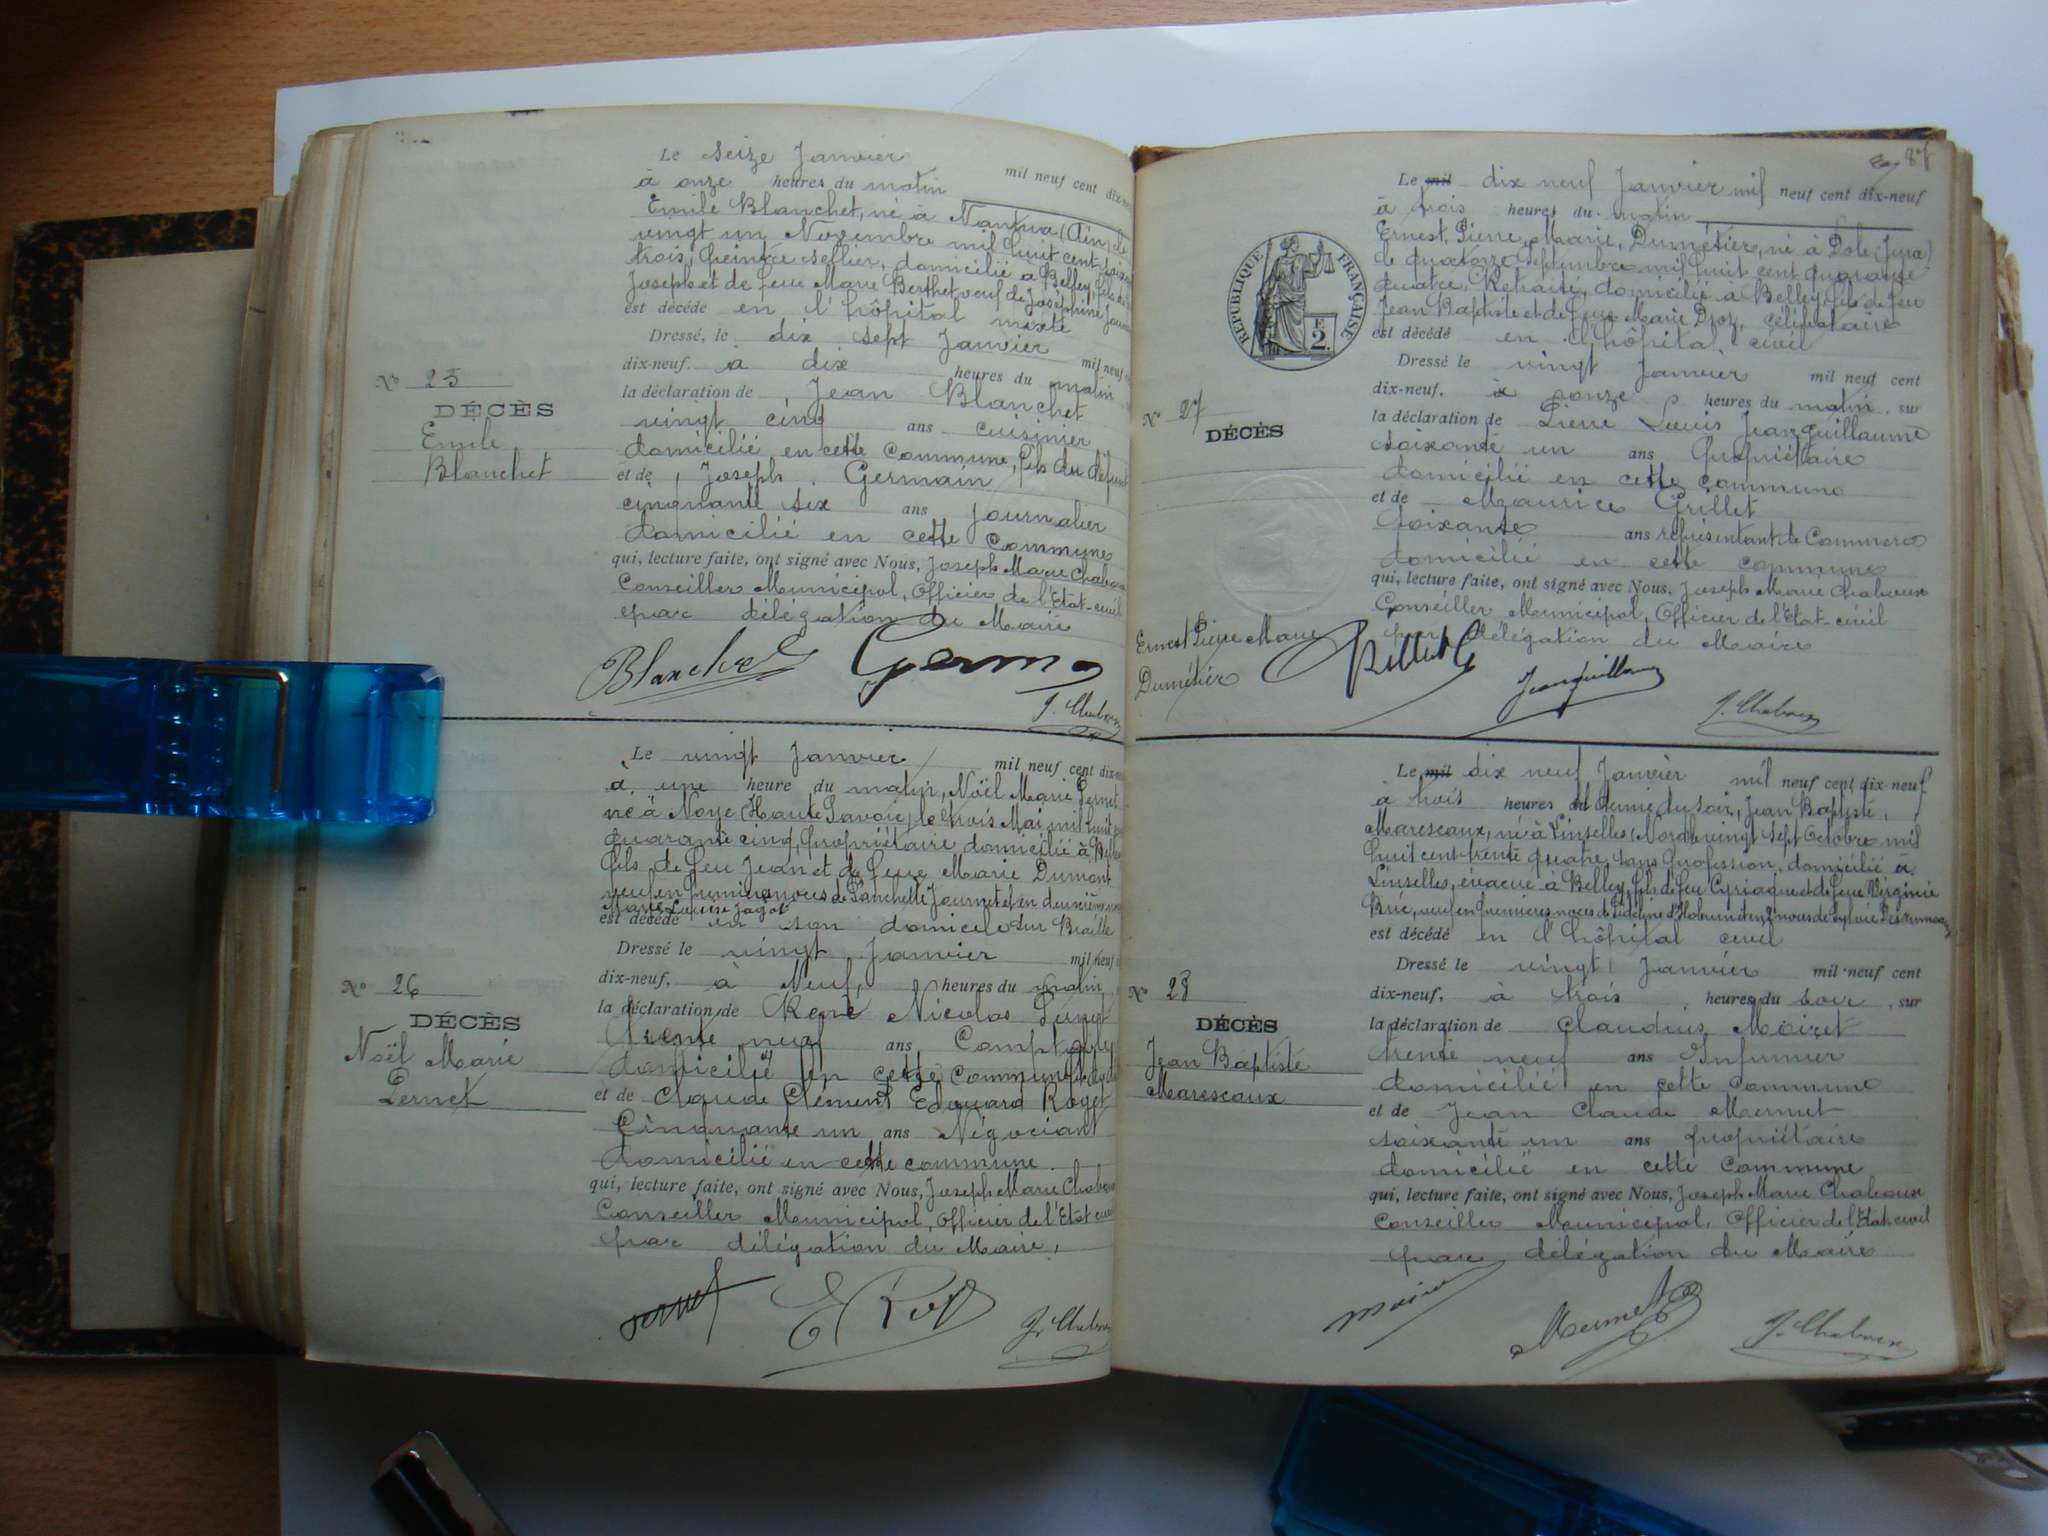 Le seize Janvier mil neuf cent dix-
à onze heures du matin
Emile Blanchet, né à Nantua (Ain) le
vingt un Novembre mil huit cent
trois, peintre sellier, domicilié à Belley, fils
Joseph et de feue Marie Berthet, veuf de Joséphine
est décédé en l'hôpital mixte
Dressé, le dix sept Janvier mil neuf
dix-neuf. à dix heures du matin
la déclaration de Jean Blanchet
vingt cinq ans cuisinier
domicilié en cette Commune, fils du défunt
et de Joseph Germain
cinquante six ans journalier
domicilié en cette Commune
qui, lecture faite, ont signé avec Nous, Joseph Marie
Conseiller Municipal, Officier de l'Etat-civil
par délégation du Maire
No 25
DÉCÈS
Emile
Blanchet
Blanchet Germain
J. Chaboux
Le vingt Janvier mil neuf cent dix-
à une heure du matin, Noël Marie Pernet
né à Noye (Haute Savoie) le trois Mai mil huit
quarante cinq, propriétaire domicilié à
fils de feu Jean et de feue Marie Dumont
veuf en premières noces de Panchette Journet et en deuxième
Marie Louise Jagot
est décédé en son domicile sur
Dressé le vingt Janvier mil neuf
dix-neuf, à Neuf, heures du matin
la déclaration de René Nicolas Pernet
trente neuf ans
domicilié en cette commune
et de Claude Clément Edouard Royet
Cinquante un ans Négociant
domicilié en cette commune
qui, lecture faite, ont signé avec Nous, Joseph Marie
Conseiller Municipal, Officier de l'Etat
par délégation du Maire,
No 26
DÉCÈS
Noël Marie
Pernet
J. Chaboux
87
Le mil dix neuf Janvier mil neuf cent dix-neuf
à trois heures du matin
Ernest, Pierre, Marie, Dumétier, né à Dole (Jura)
le quatorze Septembre mil huit cent quarante
quatre, Retraité, domicilié à Belley, fils de feu
Jean Baptiste et de feue Marie Droz, célibataire
est décédé en l'hôpital civil
Dressé le vingt Janvier mil neuf cent
dix-neuf. à onze heures du matin, sur
la déclaration de Pierre Louis Jeanguillaume
soixante un ans propriétaire
domicilié en cette commune
et de Maurice Grillet
soixante ans représentant de Commerce
domicilié en cette commune
qui, lecture faite, ont signé avec Nous, Joseph Marie Chaboux
Conseiller Municipal, Officier de l'Etat-civil
par délégation du Maire
RÉPUBLIQUE FRANÇAISE
E
2.
No 27
DÉCÈS
Ernest Pierre Marie
Dumétier
Grillet Jeanguillaume J. Chaboux
Le mil dix neuf Janvier mil neuf cent dix-neuf
à trois heures et demie du soir, Jean Baptiste,
Marescaux, né à Linselles (Nord) le vingt sept Octobre mil
huit cent trente quatre, sans profession, domicilié à
Linselles, évacué à Belley, fils de feu Cyriaque et de feue Virginie
est décédé en l'hôpital civil
Dressé le vingt Janvier mil neuf cent
dix-neuf, à trois heures du soir, sur
la déclaration de Claudius Moiret
trente neuf ans Infirmier
domicilié en cette commune
et de Jean Claude Mermet
soixante un ans propriétaire
domicilié en cette Commune
qui, lecture faite, ont signé avec Nous, Joseph Marie Chaboux
Conseiller Municipal, Officier de l'Etat-civil
par délégation du Maire
No 28
DÉCÈS
Jean Baptiste
Marescaux
Mermet J. Chaboux